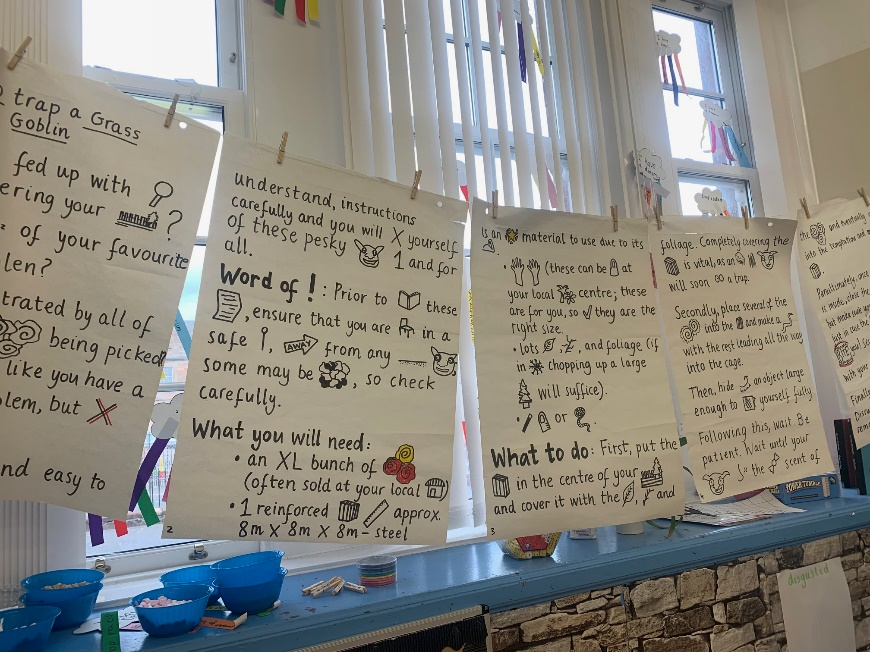 trap a Grass
Goblin
fed up with
ering your ?
of your favourite
len?
trated by all of
being picked
like you have a
lem, but
nd easy to
understand, instructions
carefully and you will X yourself
of these pesky 1 and for
all.
Word of ! : Prior to these
, ensure that you are in a
safe , AWAY from any
some may be , so check
carefully.
What you will need:
• an XL bunch of
(often sold at your local
• 1 reinforced approx.
8m X 8m X 8m - steel
2
is an material to use due to its
• (these can be at
your local centre; these
are for you, so they are the
right size.
• lots , , and foliage (if
in chopping up a large
will suffice).
• / or
What to do: First, put the
in the centre of your
and cover it with the , and
3
foliage. Completely covering the
is vital, as an
will soon a trap.
Secondly, place several of the
into the and make a
with the rest leading all the way
into the cage.
Then, hide an object large
enough to yourself fully.
Following this, wait. Be
patient. Wait until your
the scent of
the and eventually
into the temptation and
is inside, close the
with your
Finally
disgusted